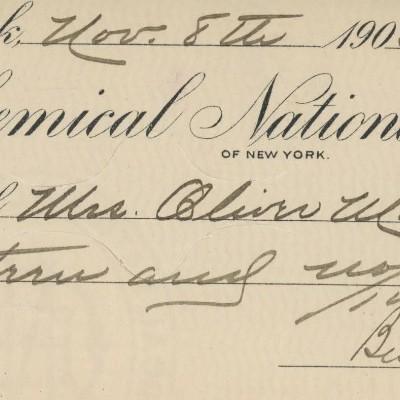 k, Nov. 8th 190
emical Nation
OF NEW YORK.
Mrs. Oliver
and no/